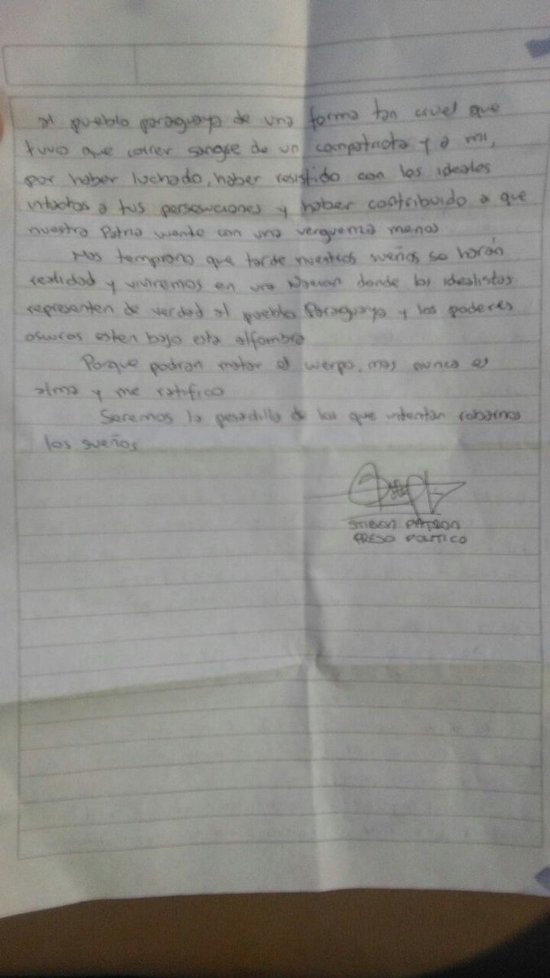 al pueblo paraguayo de una forma tan cruel que
tuvo que correr sangre de un compatriota y a mi,
por haber luchado, haber resistido con los ideales
intactos a tus persecuciones y haber contribuido a que
nuestra Patria cuente con una verguenza menos
Mas temprano que tarde nuestros sueños se harán
realidad y viviremos en una donde los idealistas
representen de verdad al pueblo Paraguayo y los poderes
oscuros esten bajo esta alfombra
Porque podran matar el cuerpo, mas nunca el
alma y me ratifico
Seremos la pesadilla de los que intentan robarnos
los sueños
STIBEN PATRON
PRESO POLITICO